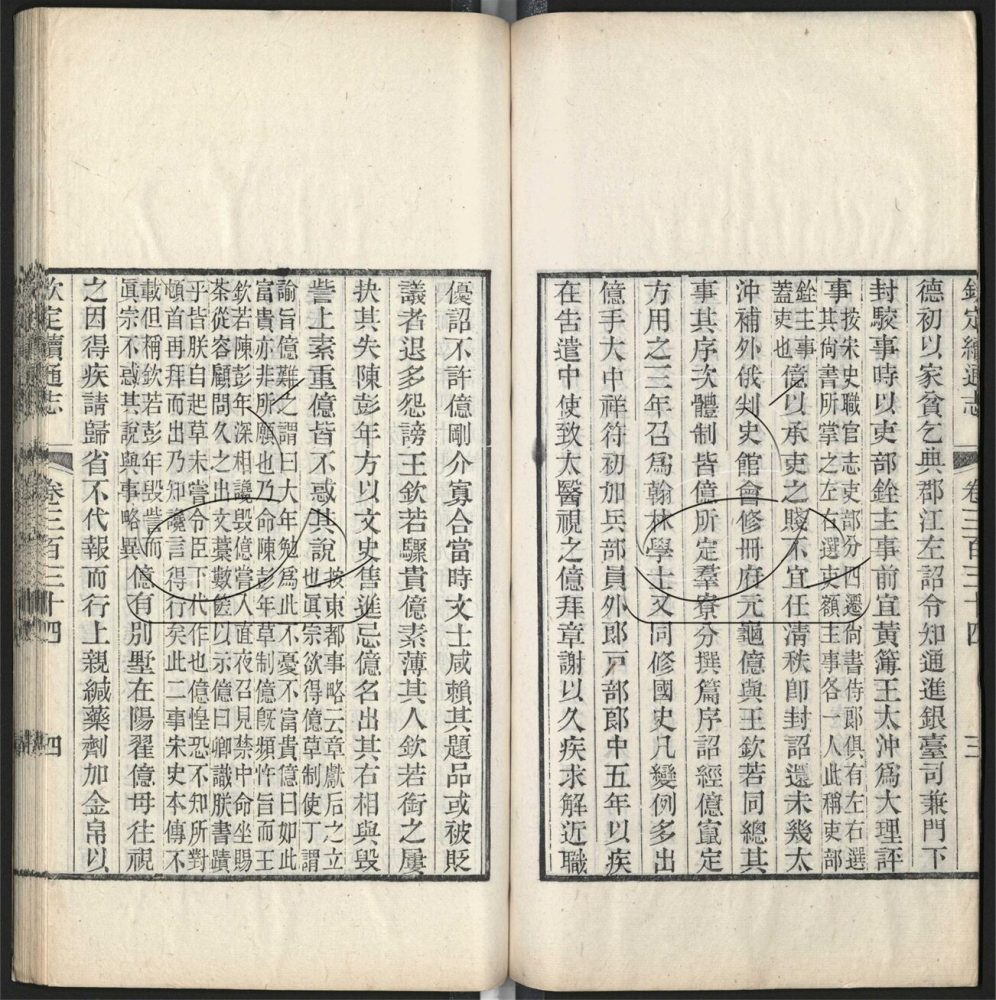 欽定續通志 卷三百三十四 三
德初以家貧乞典郡江左詔令知通進銀臺司兼門下
封駁事時以吏部銓主事前宜黃簿王太沖爲大理評
事按宋史職官志吏部分四選尚書侍郎俱有左右選
其尚書所掌之左右選吏額主事各一人此稱吏部
銓主事
蓋吏也億以承吏之賤不宜任清秩卽封詔還未幾太
沖補外俄判史館會修冊府元龜億與王欽若同總其
事其序次體制皆億所定羣寮分撰篇序詔經億竄定
方用之三年召爲翰林學士又同修國史凡變例多出
億手大中祥符初加兵部員外郎戸部郎中五年以疾
在告遣中使致太醫視之億拜章謝以久疾求解近職
優詔不許億剛介寡合當時文士咸賴其題品或被貶
議者退多怨謗王欽若驟貴億素薄其人欽若銜之屢
抉其失陳彭年方以文史售進忌億名出其右相與毁
訾上素重億皆不惑其說按東都事略云章獻后之立
也眞宗欲得億草制使丁謂
諭旨億難之謂曰大年勉爲此不憂不富貴億曰如此
富貴亦非所願也乃命陳彭年草制億旣頻忤旨而王
欽若陳彭年深相讒毁億嘗入直夜召見禁中命坐賜
茶從容顧問久之出文藁數篋以示億曰卿識朕書蹟
乎皆朕自起草未嘗令臣下代作也億惶恐不知所對
頓首再拜而出乃知讒言得行矣此二事宋史本傳不
載但稱欽若彭年毁訾而
眞宗不惑其說與事略異億有別墅在陽翟億母往視
之因得疾請歸省不代報而行上親緘藥劑加金帛以
欽定續通志 卷三百三十四 四